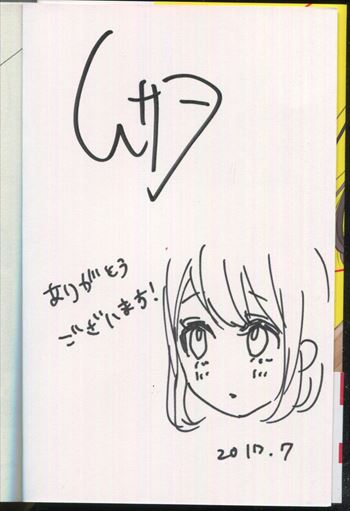 ありがとう
ございます!
2017.7